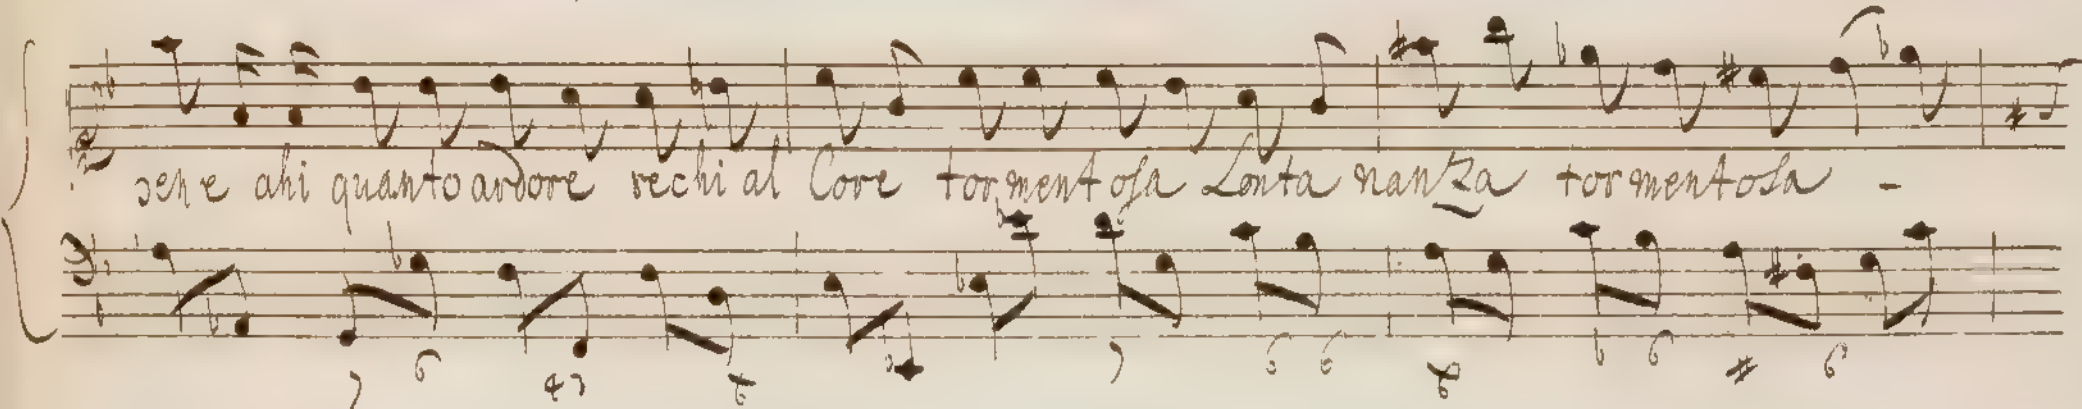 pene ahi quanto ardore rechi al Core tormentosa Lontananza tormentosa -
7 6 43 6 7 6 6 6 b 6 # 6